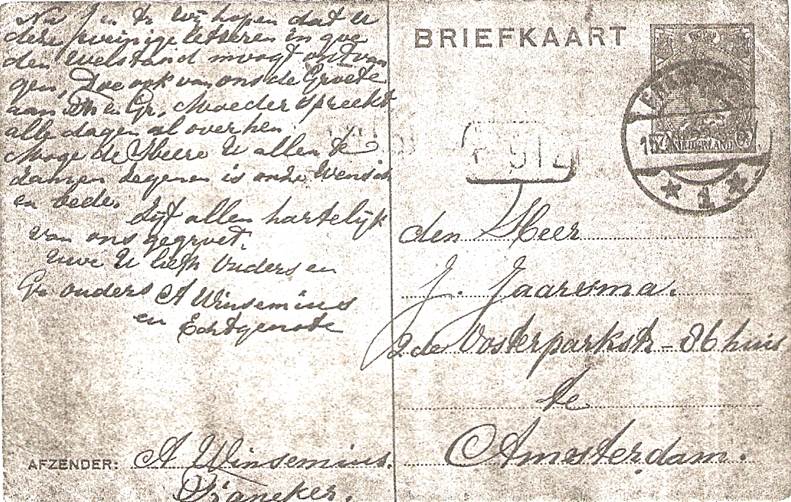 Nu J en Tr wij hopen dat U
deze weinige letteren in goe
den Welstand moogt ontvan
gen, Doe ook van ons de Groete
aan en Gr, Moeder spreekt
alle dagen al over hen
Moge de Heere U allen te
zamen zegenen is onze Wensch
en bede.
Zijt allen hartelijk
van ons gegroet.
Uwe U liefh Ouders en
Gr ouders A Winsemius
en Echtgenote
AFZENDER: A Winsemius.
Franeker.
BRIEFKAART
NEDERLAND
1
den Heer
J. Jaarsma.
2de Oosterparkstr - 86 huis
te
Amesterdam.